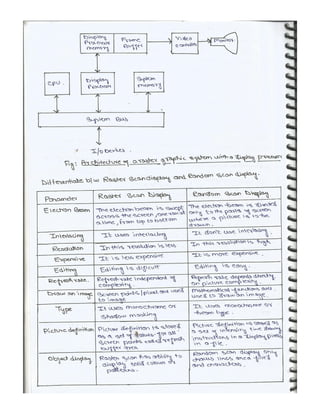 Display
Processor
memory
Frame
Buffer
Video
controller
Monitor
CPU
Display
Processor
System
memory
System Bus
I/O Devices
Fig: Architecture of a raster graphic system with a display processor
Differentiate b/w Raster Scan display and Random Scan display.
Parameter
Raster Scan Display
Random Scan Display
Electron Beam
The electron beam is swept
across the screen, one row at
a time, from top to bottom
The electron beam is directed
only to the parts of screen
where a picture is to be
drawn.
Interlacing
It uses interlacing
It don't use interlacing.
Resolution
In this resolution is less
In this resolution is high
Expensive
It is less expensive
It is more expensive.
Editing
Editing is difficult
Editing is easy.
Refresh rate
Refresh rate independent of
complexity.
Refresh rate depends directly
on picture complexity
Draw an image
Screen points/pixels are used
to image
Mathematical functions are
used to draw an image
Type
It uses monochrome or
Shadow masking
It uses monochrome or
type.
Picture definition
Picture definition is stored
as a set of for all
screen points called refresh
buffer area
Picture definition is stored as
a set of line drawing
instructions in a display
in a file.
Object display
Raster scan has ability to
display solid colour
patterns.
Random scan display only
lines
and characters.